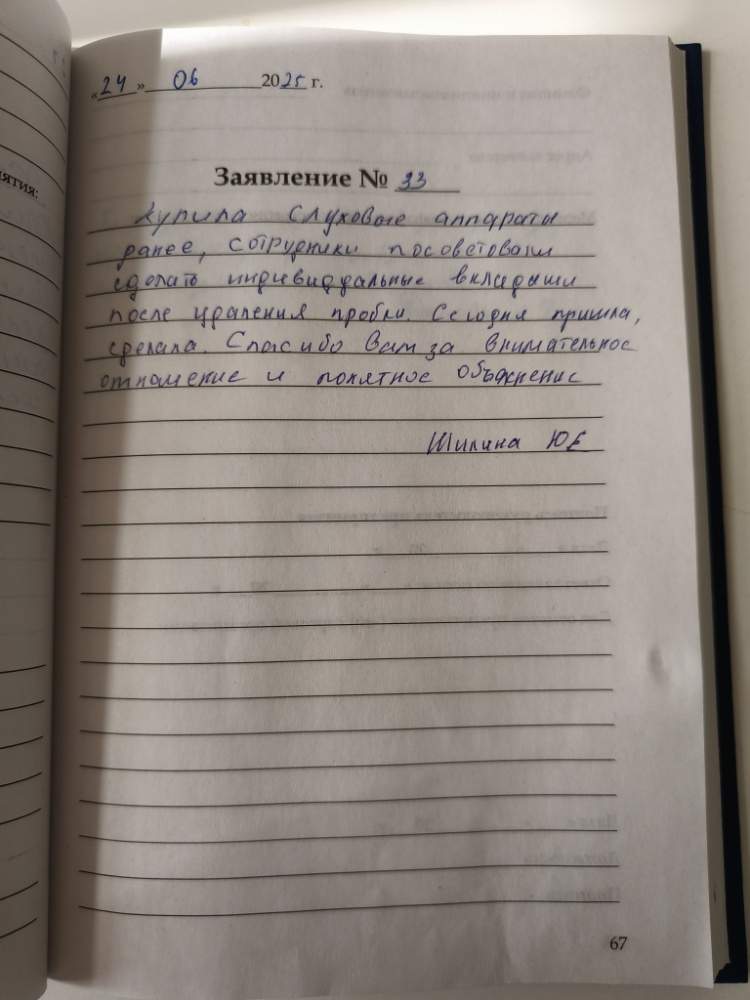 «24» 06 2025 г.
Заявление № 33
Купила слуховые аппараты
ранее, сотрудники посоветовали
сделать индивидуальные вкладыши
после удаления пробки. Сегодня пришла,
сделала. Спасибо Вам за внимательное
отношение и понятное объяснение
Шилина ЮЕ
67
ятия: